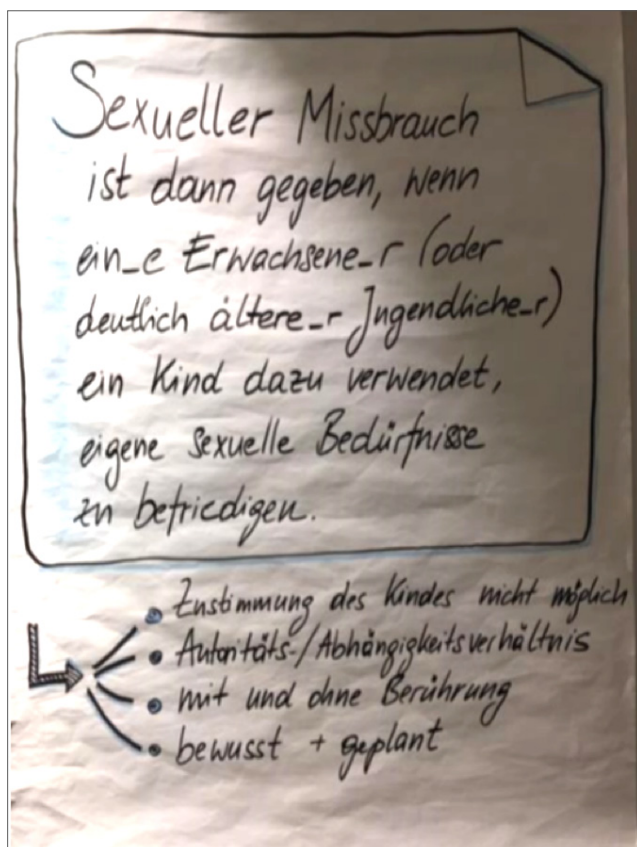 Sexueller Missbrauch
ist dann gegeben, wenn
ein_e Erwachsene_r (oder
deutlich ältere_r Jugendliche_r)
ein Kind dazu verwendet,
eigene sexuelle Bedürfnisse
zu befriedigen.
• Zustimmung des Kindes nicht möglich
• Autoritäts-/Abhängigkeitsverhältnis
• mit und ohne Berührung
• bewusst + geplant